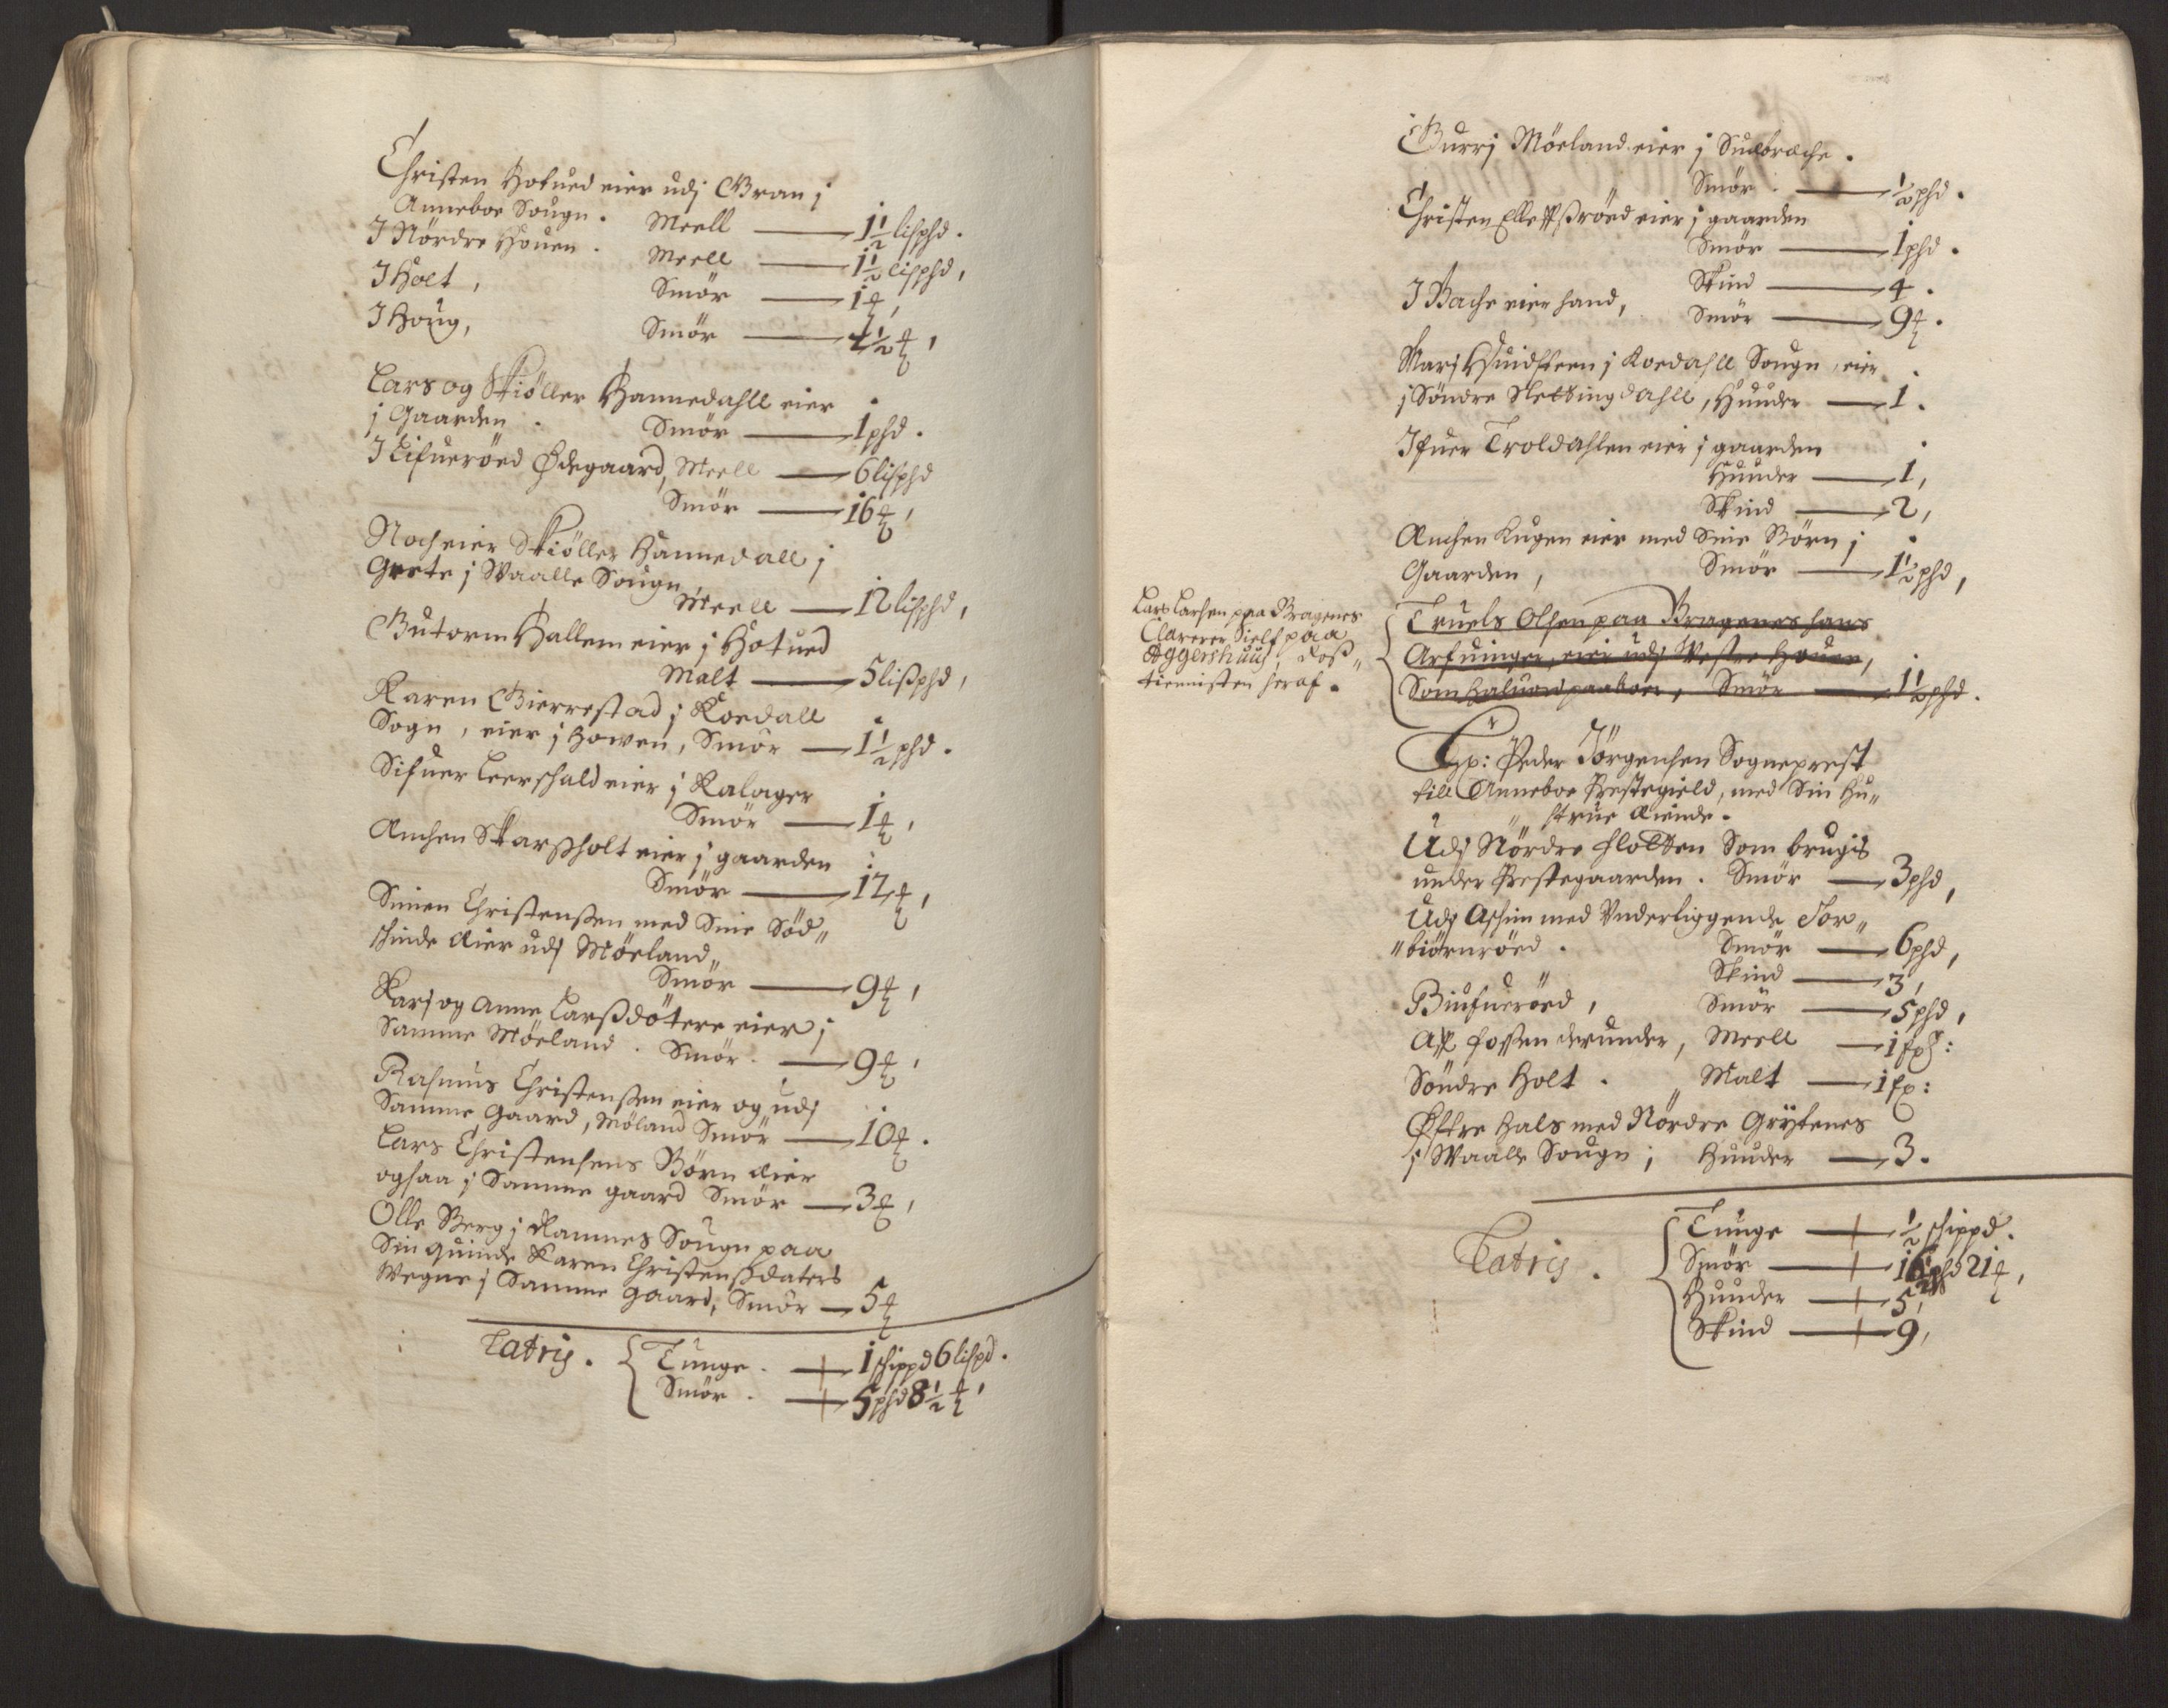 Christen Hotued eier udj Gran j
Anneboe Sougn. Meell — 1½ lisphd.
J Nördre Houen. Meell — 1½ lisphd,
J Holt, Smör — 1 ℔,
J Houg, Smör — 4½ ℔,
Lars og Skiöller Hannedahll eier
j Gaarden. Smör — 1 phd.
J Lifueröed Ødegaard, Meell — 6 lisphd
Smör — 16 ℔,
Noch eier Skiöller Hannedall j
Grete j Waalle Sougn,
Meell — 12 lisphd,
Gutorm Hallem eier j Hotued
Malt — 5 lißphd,
Karen Gierrestad j Koedall
Sogn, eier j Howen, Smör — 1½ phd.
Sifuer Leerskald eier j Ralager
Smör — 1 ℔,
Amchen Skarßholt eier j gaarden
Smör — 12 ℔,
Simen Christenßen med Sine Söd„
skinde Eier udj Möeland„
Smör — 9 ℔,
Karj og Anne Larßdötere eier j
Samme Möeland. Smör. — 9 ℔,
Rasmus Christenßen eier og udj
Samme Gaard, Möland Smör — 10 ℔.
Lars Christensens Börn Eier
ogsaa j Samme gaard Smör — 3 ℔,
Olle Berg j Ramnes Sougn paa
Sin quinde Karen Christenßdaters
Wegne j Samme gaard, Smör — 5 ℔
Latris. Tunge. — 1 skippd 6 lispd.
Smör. — 5 phd 8½ ℔,
Gurrj Möeland eier j Sudbrache.
Smör. — ½ phd.
Christen Elleffsröed eier j gaarden
Smör — 1 phd.
Skind — 4.
J Bache eier hand, Smör — 9 ℔.
Marj Huidsteen j Koedahll Sougn, eier
j Söndre Slettingdahll, Huuder — 1.
Ifuer Troldahlen eier j gaarden
Huuder — 1,
Skind — 2,
Amchen Kugen eier med Sine Börn j
Gaarden, Smör — 1½ phd,
Lars Larsen paa Bragenes
Clarerer Sielf paa
Aggershuus, Roß„
tiennisten heraf.
Truels Olsen paa Bragenes hans
Arfuinger, eier udj Westre Houen,
Som Haluord paaboer, Smör — 1½ phd.
Hr: Peder Jörgensen Sogneprest
till Anneboe Prestegield, med Sin Hu„
„strue Eiende.
Udj Nördre Flotten Som brugis
under Prestegaarden. Smör — 3 phd,
Udj Askim med Vnderliggende Tor„
„biörnröed. Smör — 6 phd,
Skind — 3,
Biufueröed, Smör — 5 phd,
Aff Foßen derunder, Meell — 1 ſph:
Söndre Holt. Malt — 1 ſp:
Østre Hals med Nördre Grytenes
j Waalle Sougn; Huuder — 3.
Latris. Tunge — ½ skippd.
Smör — 16½ phd 21 ℔,
Huuder — 5,
Skind — 9,